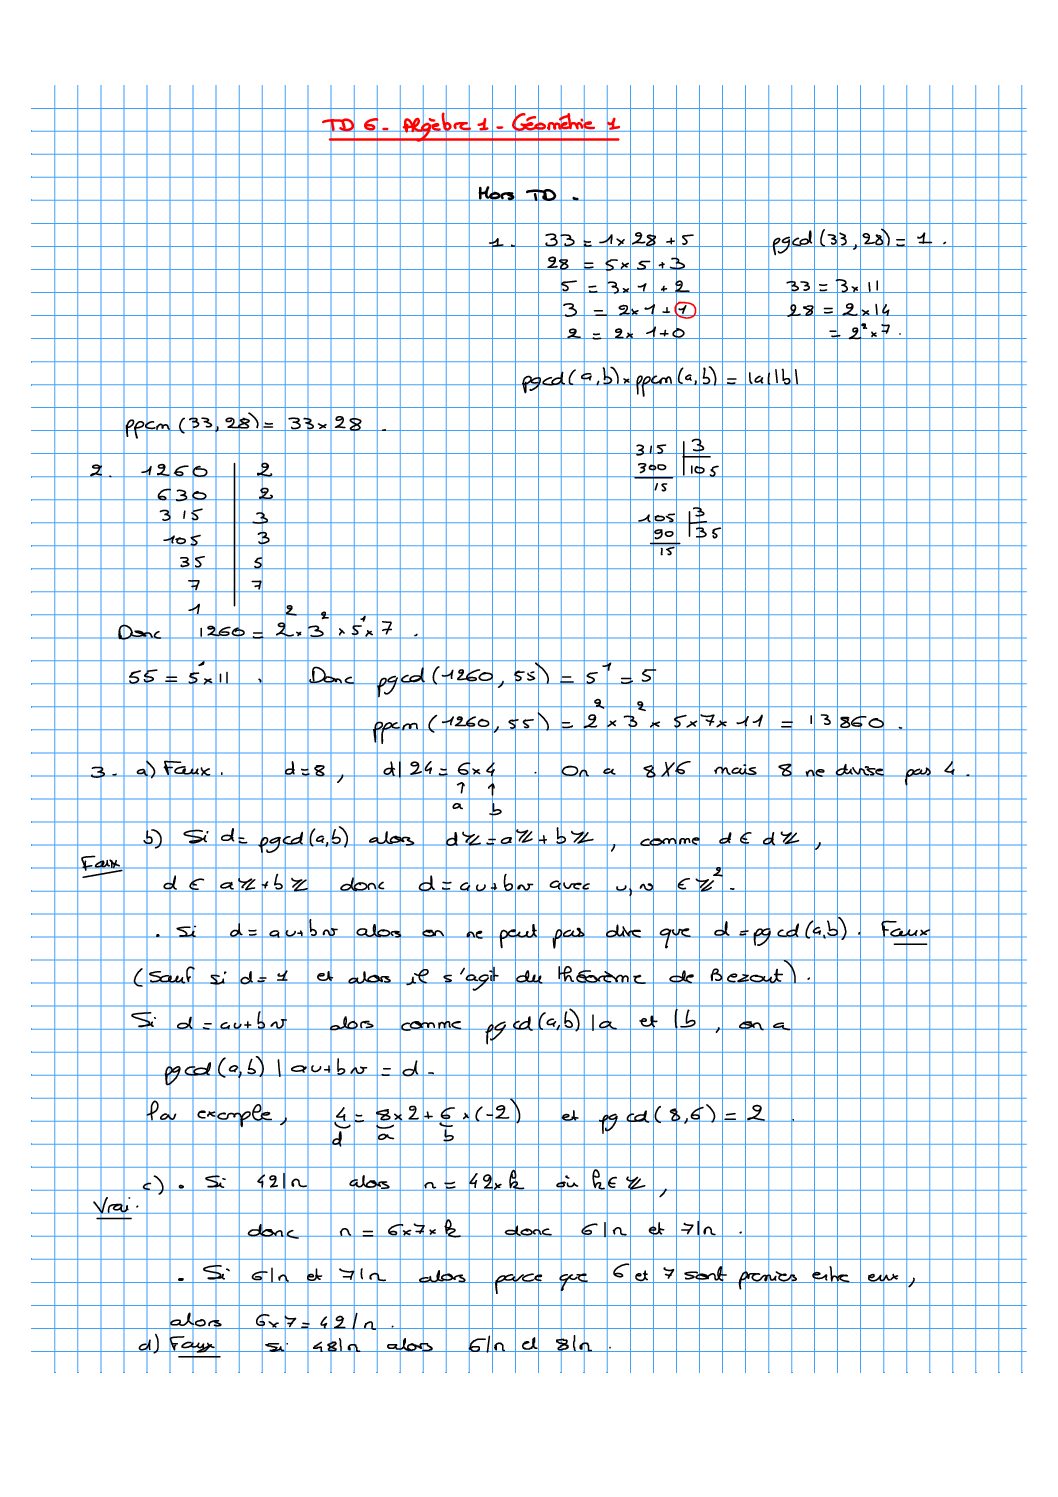 TD 6 - Algèbre 1 - Géométrie 1
Hors TD.
1. 33 = 1 x 28 + 5 pgcd (33, 28) = 1.
28 = 5 x 5 + 3
5 = 3 x 1 + 2 33 = 3 x 11
3 = 2 x 1 + 1 28 = 2 x 14
2 = 2 x 1 + 0 = 2² x 7.
pgcd (a, b) x ppcm (a, b) = |a||b|
ppcm (33, 28) = 33 x 28.
315 | 3
300 | 105
15
105 | 3
90 | 35
15
2. 1260 | 2
630 | 2
315 | 3
105 | 3
35 | 5
7 | 7
1
Donc 1260 = 2² x 3² x 5¹ x 7.
55 = 5¹ x 11. Donc pgcd (1260, 55) = 5¹ = 5
ppcm (1260, 55) = 2² x 3² x 5 x 7 x 11 = 13860.
3. a) Faux. d = 8, d | 24 = 6 x 4. On a 8 ∤ 6 mais 8 ne divise pas 4.
↑ ↑
a b
b) Si d = pgcd (a, b) alors dℤ = aℤ + bℤ, comme d ∈ dℤ,
Faux
d ∈ aℤ + bℤ donc d = au + bv avec u, v ∈ ℤ².
. Si d = au + bv alors on ne peut pas dire que d = pgcd (a, b). Faux
(Sauf si d = 1 et alors il s'agit du théorème de Bezout).
Si d = au + bv alors comme pgcd (a, b) | a et | b, on a
pgcd (a, b) | au + bv = d.
Par exemple, 4 = 8 x 2 + 6 x (-2) et pgcd (8, 6) = 2.
d a b
c) . Si 42 | n alors n = 42 x k où k ∈ ℤ,
Vrai.
donc n = 6 x 7 x k donc 6 | n et 7 | n.
. Si 6 | n et 7 | n alors parce que 6 et 7 sont premiers entre eux,
alors 6 x 7 = 42 | n.
d) Faux si 48 | n alors 6 | n et 8 | n.